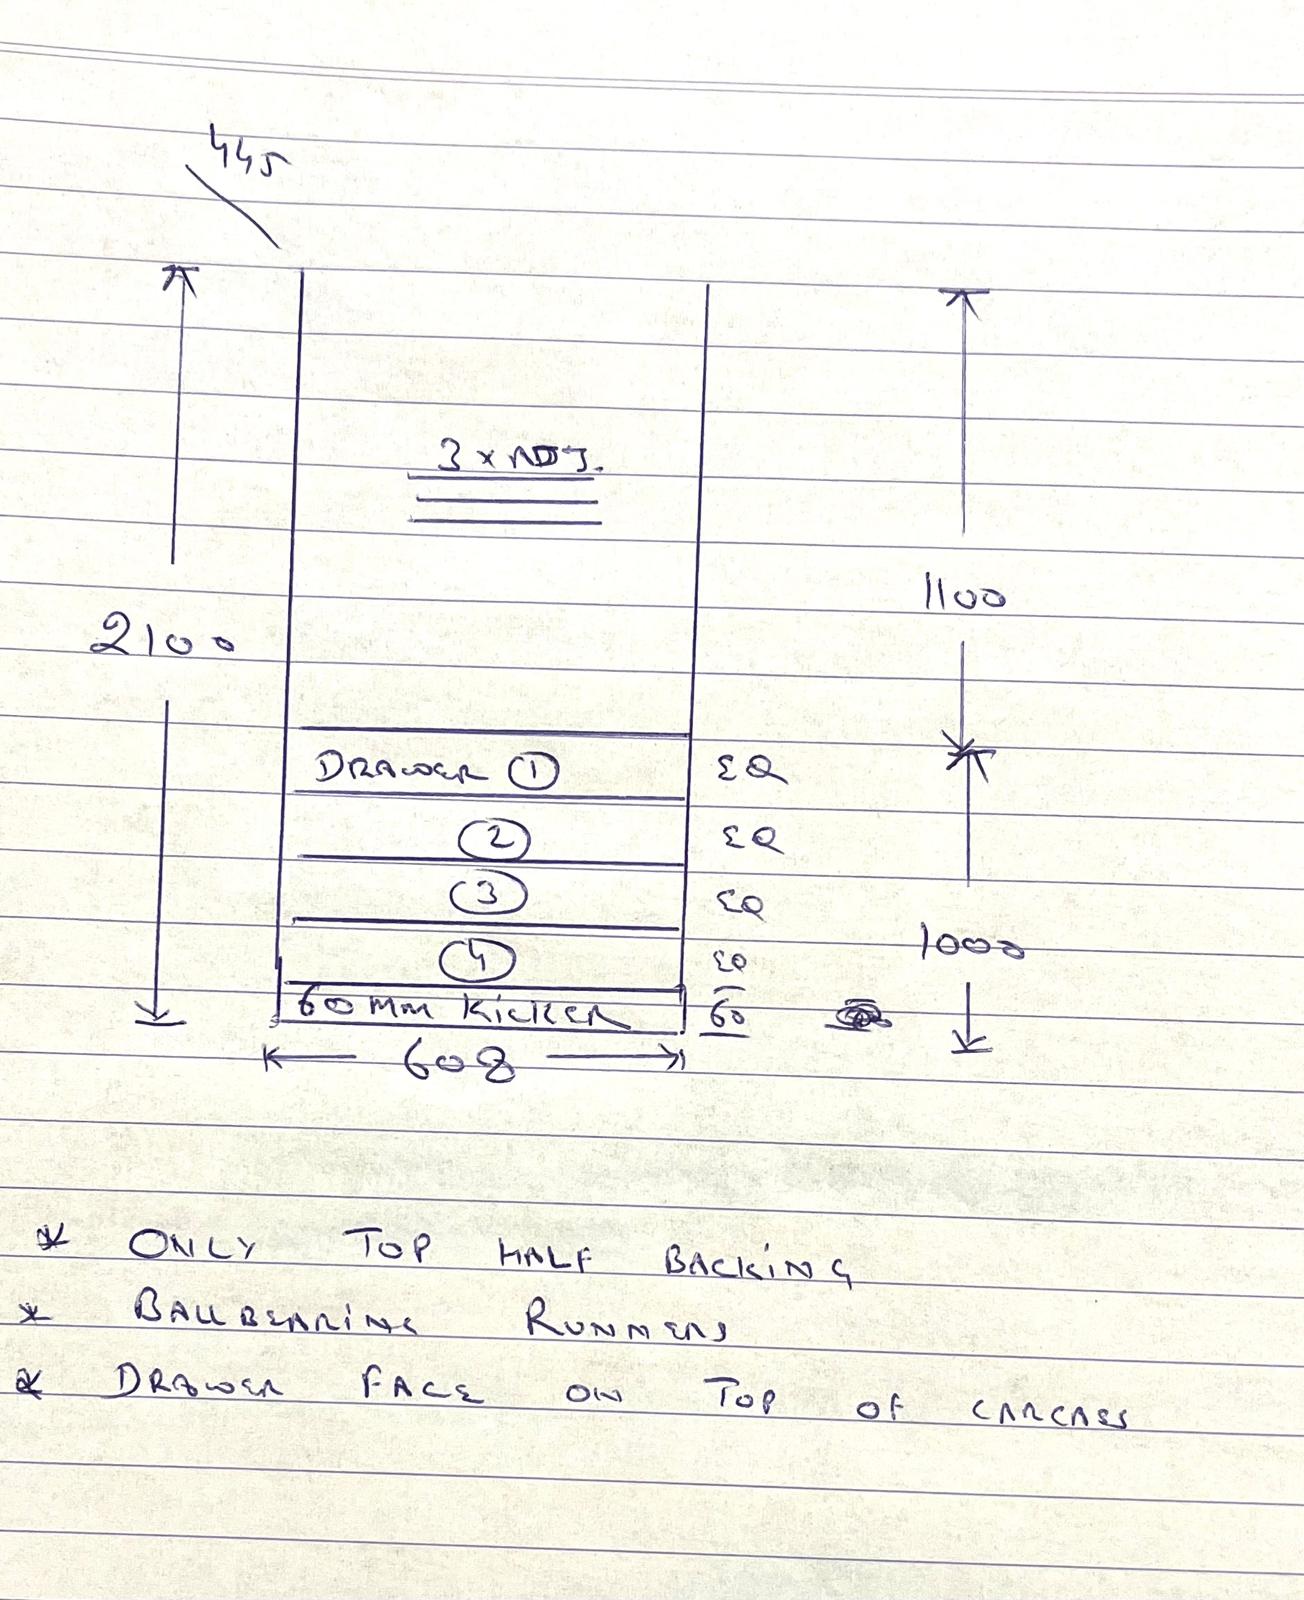 445
3 x ADJ.
1100
2100
DRAWER 1 EQ
2 EQ
3 EQ
4 EQ
1000
60 MM KICKER 60
608
* ONLY TOP HALF BACKING
* BALLBEARING RUNNERS
* DRAWER FACE ON TOP OF CARCASS